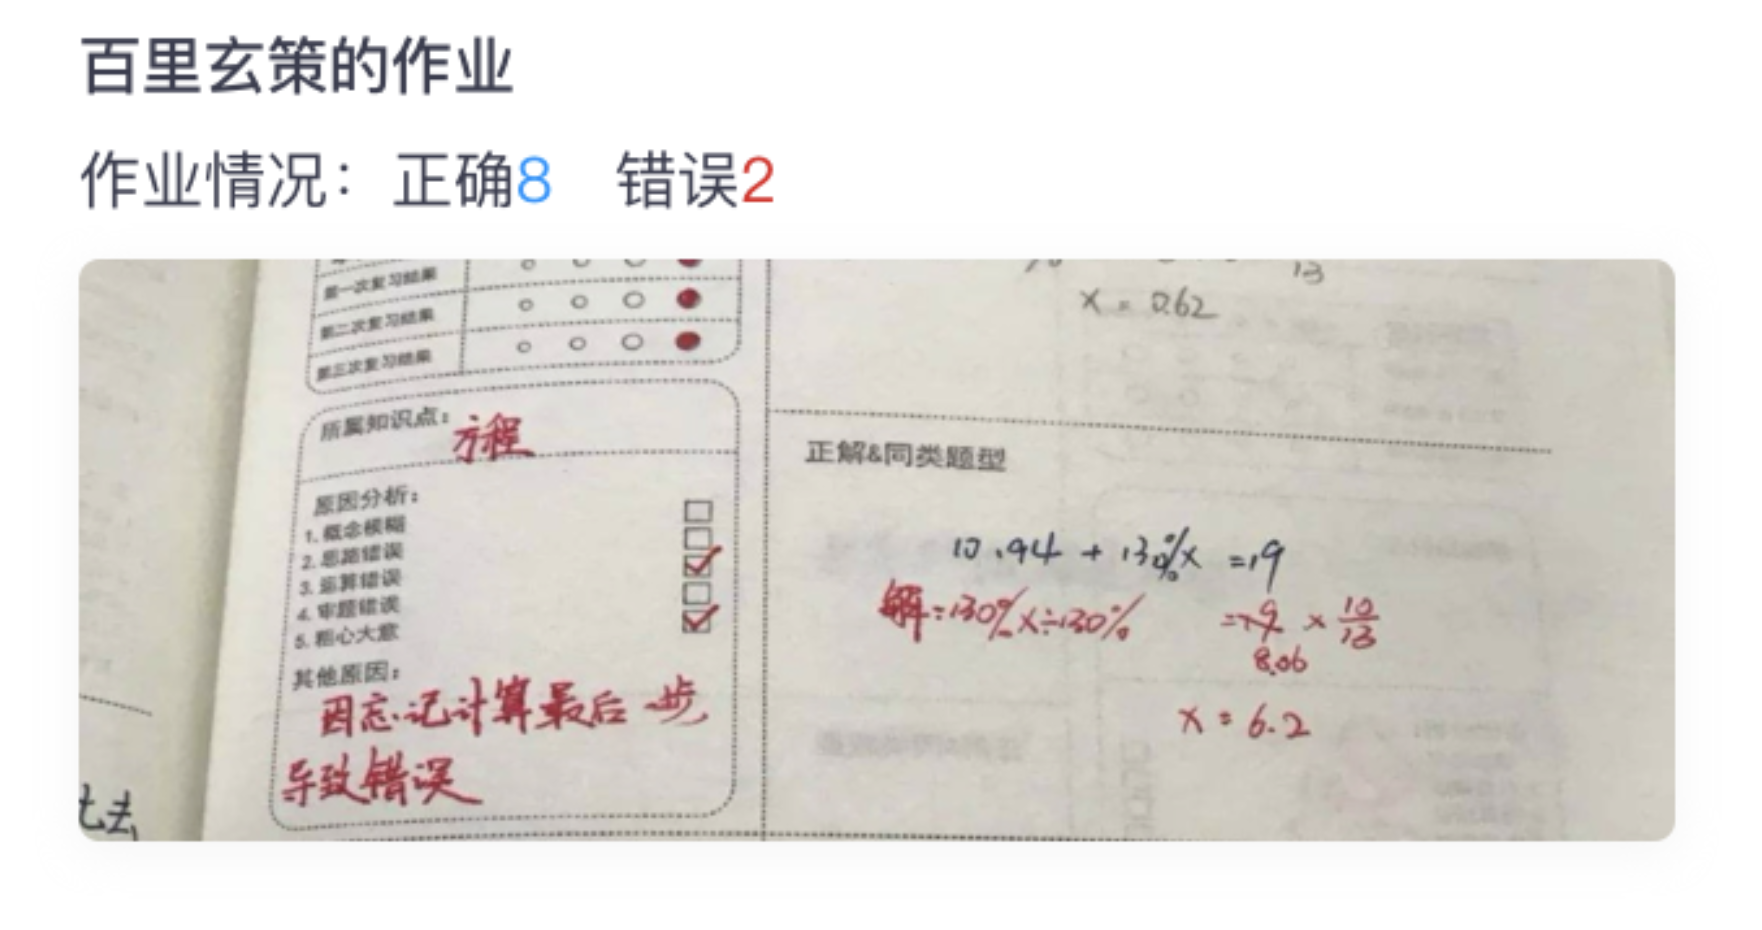 百里玄策的作业
作业情况：正确8 错误2
第一次复习结果
第二次复习结果
第三次复习结果
所属知识点：方程
原因分析：
1. 概念模糊
2. 思路错误
3. 运算错误
4. 审题错误
5. 粗心大意
其他原因：
因忘记计算最后一步,
导致错误
13
x = 0.62
正解&同类题型
10.94 + 130%x = 19
解:130%x÷130% = 19 × 10/13
8.06
x = 6.2